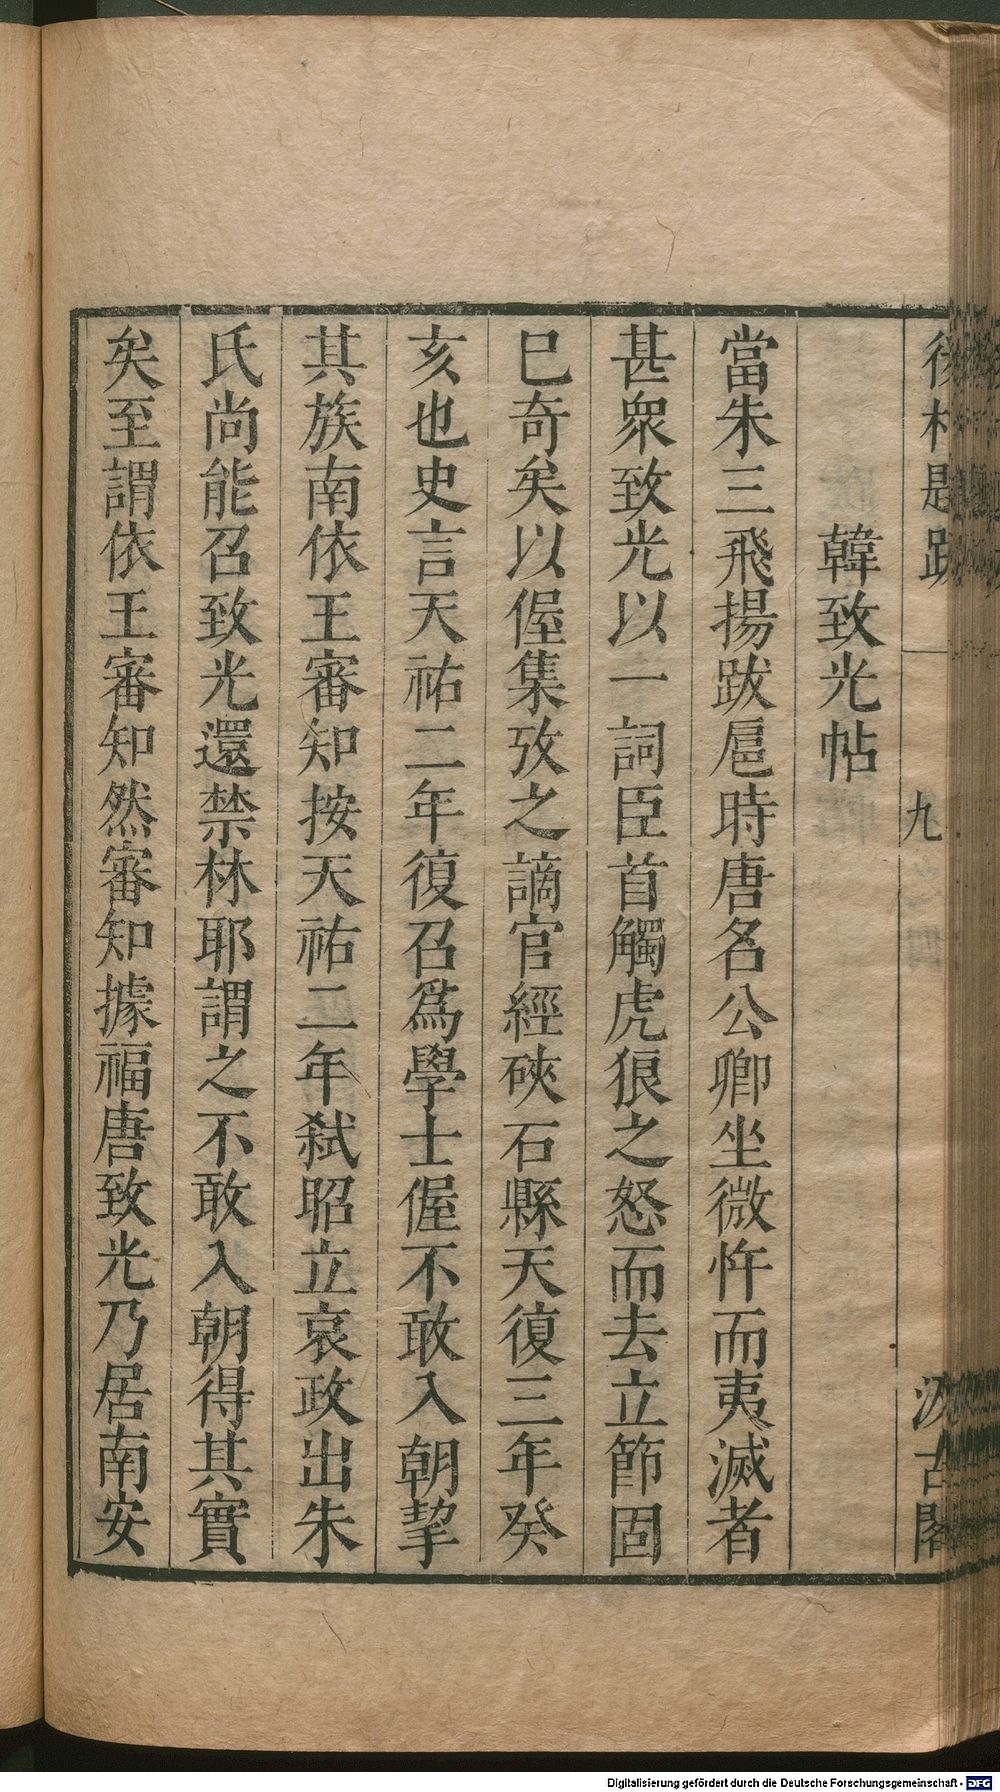 後村題跋 九 汲古閣
韓致光帖
當朱三飛揚跋扈時唐名公卿坐微忤而夷滅者
甚衆致光以一詞臣首觸虎狼之怒而去立節固
巳奇矣以偓集攷之謫官經硤石縣天復三年癸
亥也史言天祐二年復召爲學士偓不敢入朝挈
其族南依王審知按天祐二年弑昭立哀政出朱
氏尚能召致光還禁林耶謂之不敢入朝得其實
矣至謂依王審知然審知據福唐致光乃居南安
Digitalisierung gefördert durch die Deutsche Forschungsgemeinschaft - DFG